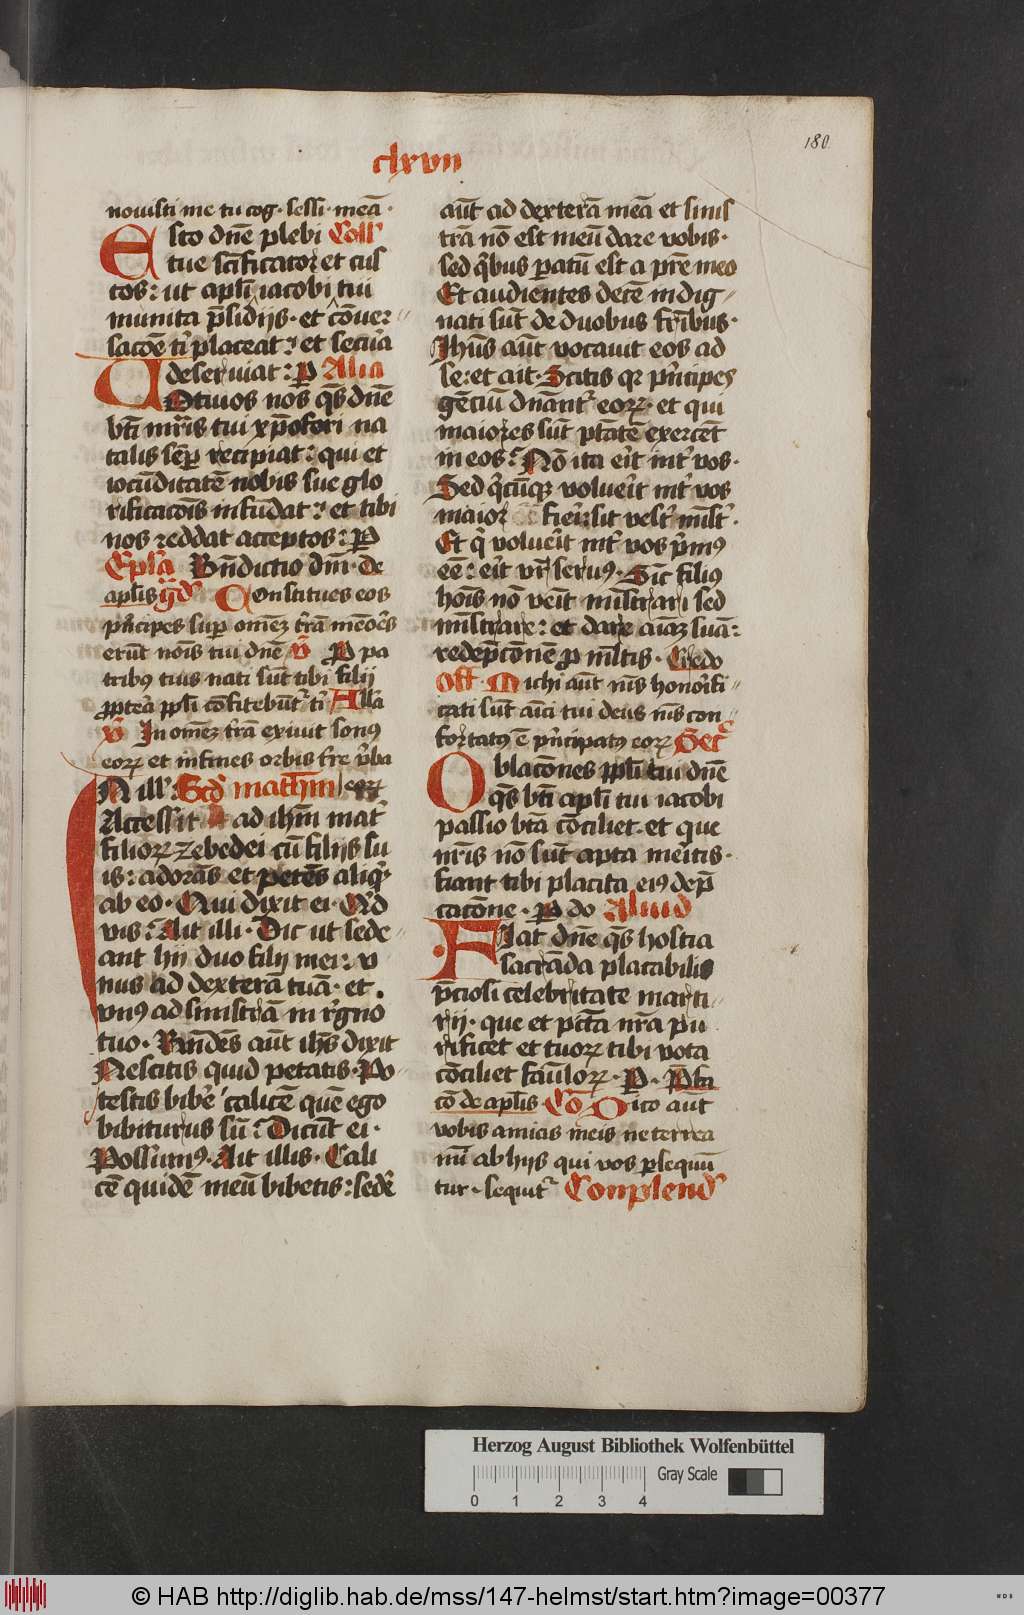 180
clxvii
nouisti me tu cog· sessi· meā·
Esto dn̄e plebi Coll̄
tue sc̄ificator et cus
tos: ut apl̄i iacobi tui
munita p̄sidijs· et cōuer-
sacōe tī placeat: et secūa
deseruiat: P Alia
Uotiuos nos q̄s dn̄e
bt̄i mr̄is tui xp̄ofori na
talis sēp recipiat: qui et
iocūditatē nobis sue glo
rificacōis infūdat: et tibi
nos reddat acceptos: P
Epl̄a Bn̄dictio dn̄i· De
apl̄is ijd̄ Constitues eos
pn̄cipes sup omēz t̄rā mēōes
erūt nōis tui dn̄e v̄ P pa
tribꝰ tuis nati sūt tibi filij
ꝓpterā ppl̄i cōfitebūt᷑ tī All̄a
v̄ In omēz t̄rā exiuit sonꝰ
eoꝝ et in fines orbis t̄re v̄ba
In ill̄: Scd̄ mathm̄ eoꝝ
Accessit ad ihm̄ mat̄
filioꝝ zebedei cū filijs su
is: adorās et petēs aliq̄·
ab eo· Qui dixit ei· Qd̄
vis: Ait illi· Dic ut sede-
ant hij duo filij mei: v
nus ad dexterā tuā· et
vnꝰ ad sinistrā in r̄gno
tuo· Rn̄dēs aūt ihs̄ dixit
Nescitis quid petatis· Po-
testis bibe᷑ calicē quē ego
bibiturus sū: Dicūt ei·
Possumꝰ· Ait illis· Cali
cē quidē meū bibetis: sede᷑
aūt ad dexterā meā et sinis
trā nō est meū dare vobis·
sed q̄bus paratū est a pr̄e meo
Et audientes decē indig-
nati sūt de duobus fr̄ibus·
Jhūs aūt vocauit eos ad
se: et ait· Scitis qr pn̄cipes
gēciū dn̄ant᷑ eoꝝ· et qui
maiores sūt ptātē exercēt
in eos: Nō ita eīt int᷑ vos·
Sed q̄cūqꝫ voluer̄it int᷑ vos
maior fieri: sit vest᷑ mīst᷑·
Et q̄ voluer̄it int᷑ vos p̄mꝰ
ēē: er̄it vr̄ seruꝰ· Sic̄ filiꝰ
hoīs nō venīt mīstrari sed
mīstrare: et dare aīaz suā:
redēpcōnē p ml̄tis· Credo
Off· Michi aūt nīs honorifi-
cati sūt aīci tui deus nīs con-
fortatus ē pn̄cipatꝰ eoꝝ Secr̄
Oblacōnes ppl̄i tui dn̄e
q̄s bt̄i apl̄i tui iacobi
passio btā cōciliet· et que
nr̄is nō sūt apta meritis·
fiant tibi placita eiꝰ dep̄
cacōne· P do Aliud
Fiat dn̄e q̄s hostia
sacrāda placabilis
p̄ciosi celebritate marti-
rij· que et pctā nr̄a pu
rificet et tuoꝝ tibi vota
cōciliet faūloꝝ· P· P̄fa
cō de apl̄is Cō Dico aūt
vobis amicis meis ne terrea
mī ab hijs qui vos psequū
tur· sequit᷑ Conplend̄
Herzog August Bibliothek Wolfenbüttel
Gray Scale
0 1 2 3 4
© HAB http://diglib.hab.de/mss/147-helmst/start.htm?image=00377
WDB